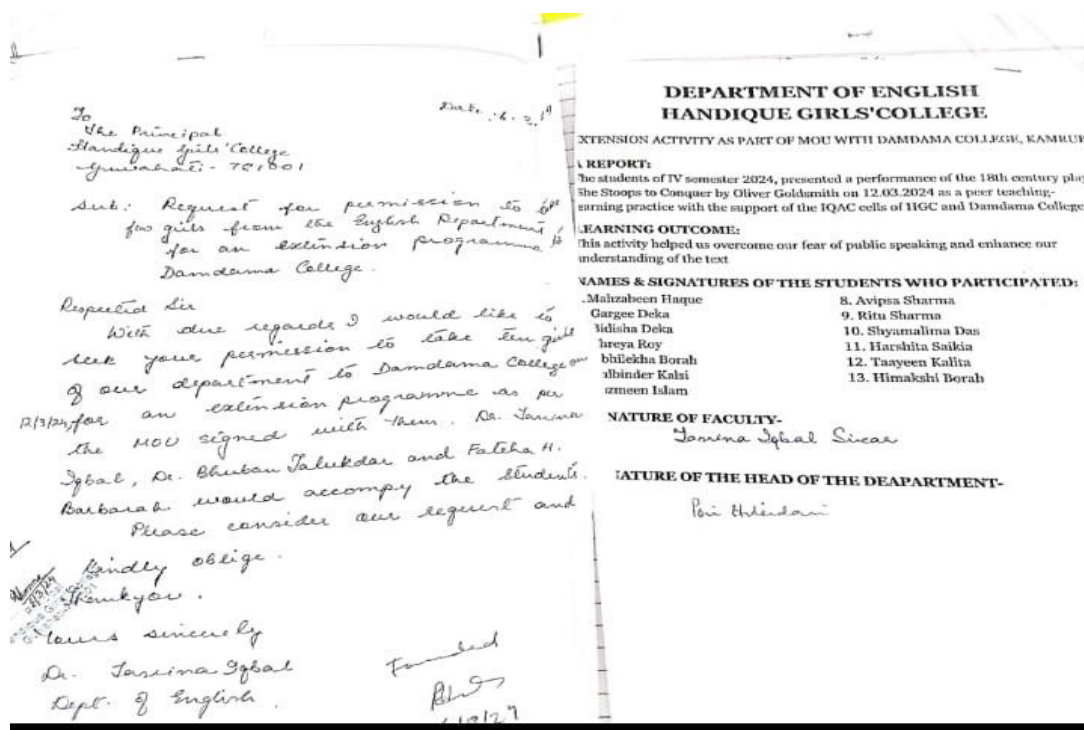 To
The Principal
Handique Girls' College
Guwahati - 781001
Sub: Request for permission to take
few girls from the English Department
for an extension programme to
Damdama College.
Respected Sir
With due regards I would like to
seek your permission to take ten girls
of our department to Damdama College on
12/3/24, for an extension programme as per
the MOU signed with them. Dr. Tasrina
Iqbal, Dr. Bhuban Talukdar and Fateha H.
Barbarah would accompy the students.
Please consider our request and
kindly oblige.
Thankyou.
Yours sincerely
Dr. Tasrina Iqbal
Dept. of English
DEPARTMENT OF ENGLISH
HANDIQUE GIRLS'COLLEGE
EXTENSION ACTIVITY AS PART OF MOU WITH DAMDAMA COLLEGE, KAMRUP
A REPORT:
The students of IV semester 2024, presented a performance of the 18th century play
She Stoops to Conquer by Oliver Goldsmith on 12.03.2024 as a peer teaching-
earning practice with the support of the IQAC cells of HGC and Damdama College
LEARNING OUTCOME:
This activity helped us overcome our fear of public speaking and enhance our
understanding of the text
NAMES & SIGNATURES OF THE STUDENTS WHO PARTICIPATED:
Mahzabeen Haque
Gargee Deka
Bidisha Deka
hreya Roy
bhilekha Borah
albinder Kalsi
azmeen Islam
8. Avipsa Sharma
9. Ritu Sharma
10. Shyamalima Das
11. Harshita Saikia
12. Taayeen Kalita
13. Himakshi Borah
NATURE OF FACULTY-
Tasrina Iqbal Sircar
ATURE OF THE HEAD OF THE DEAPARTMENT-